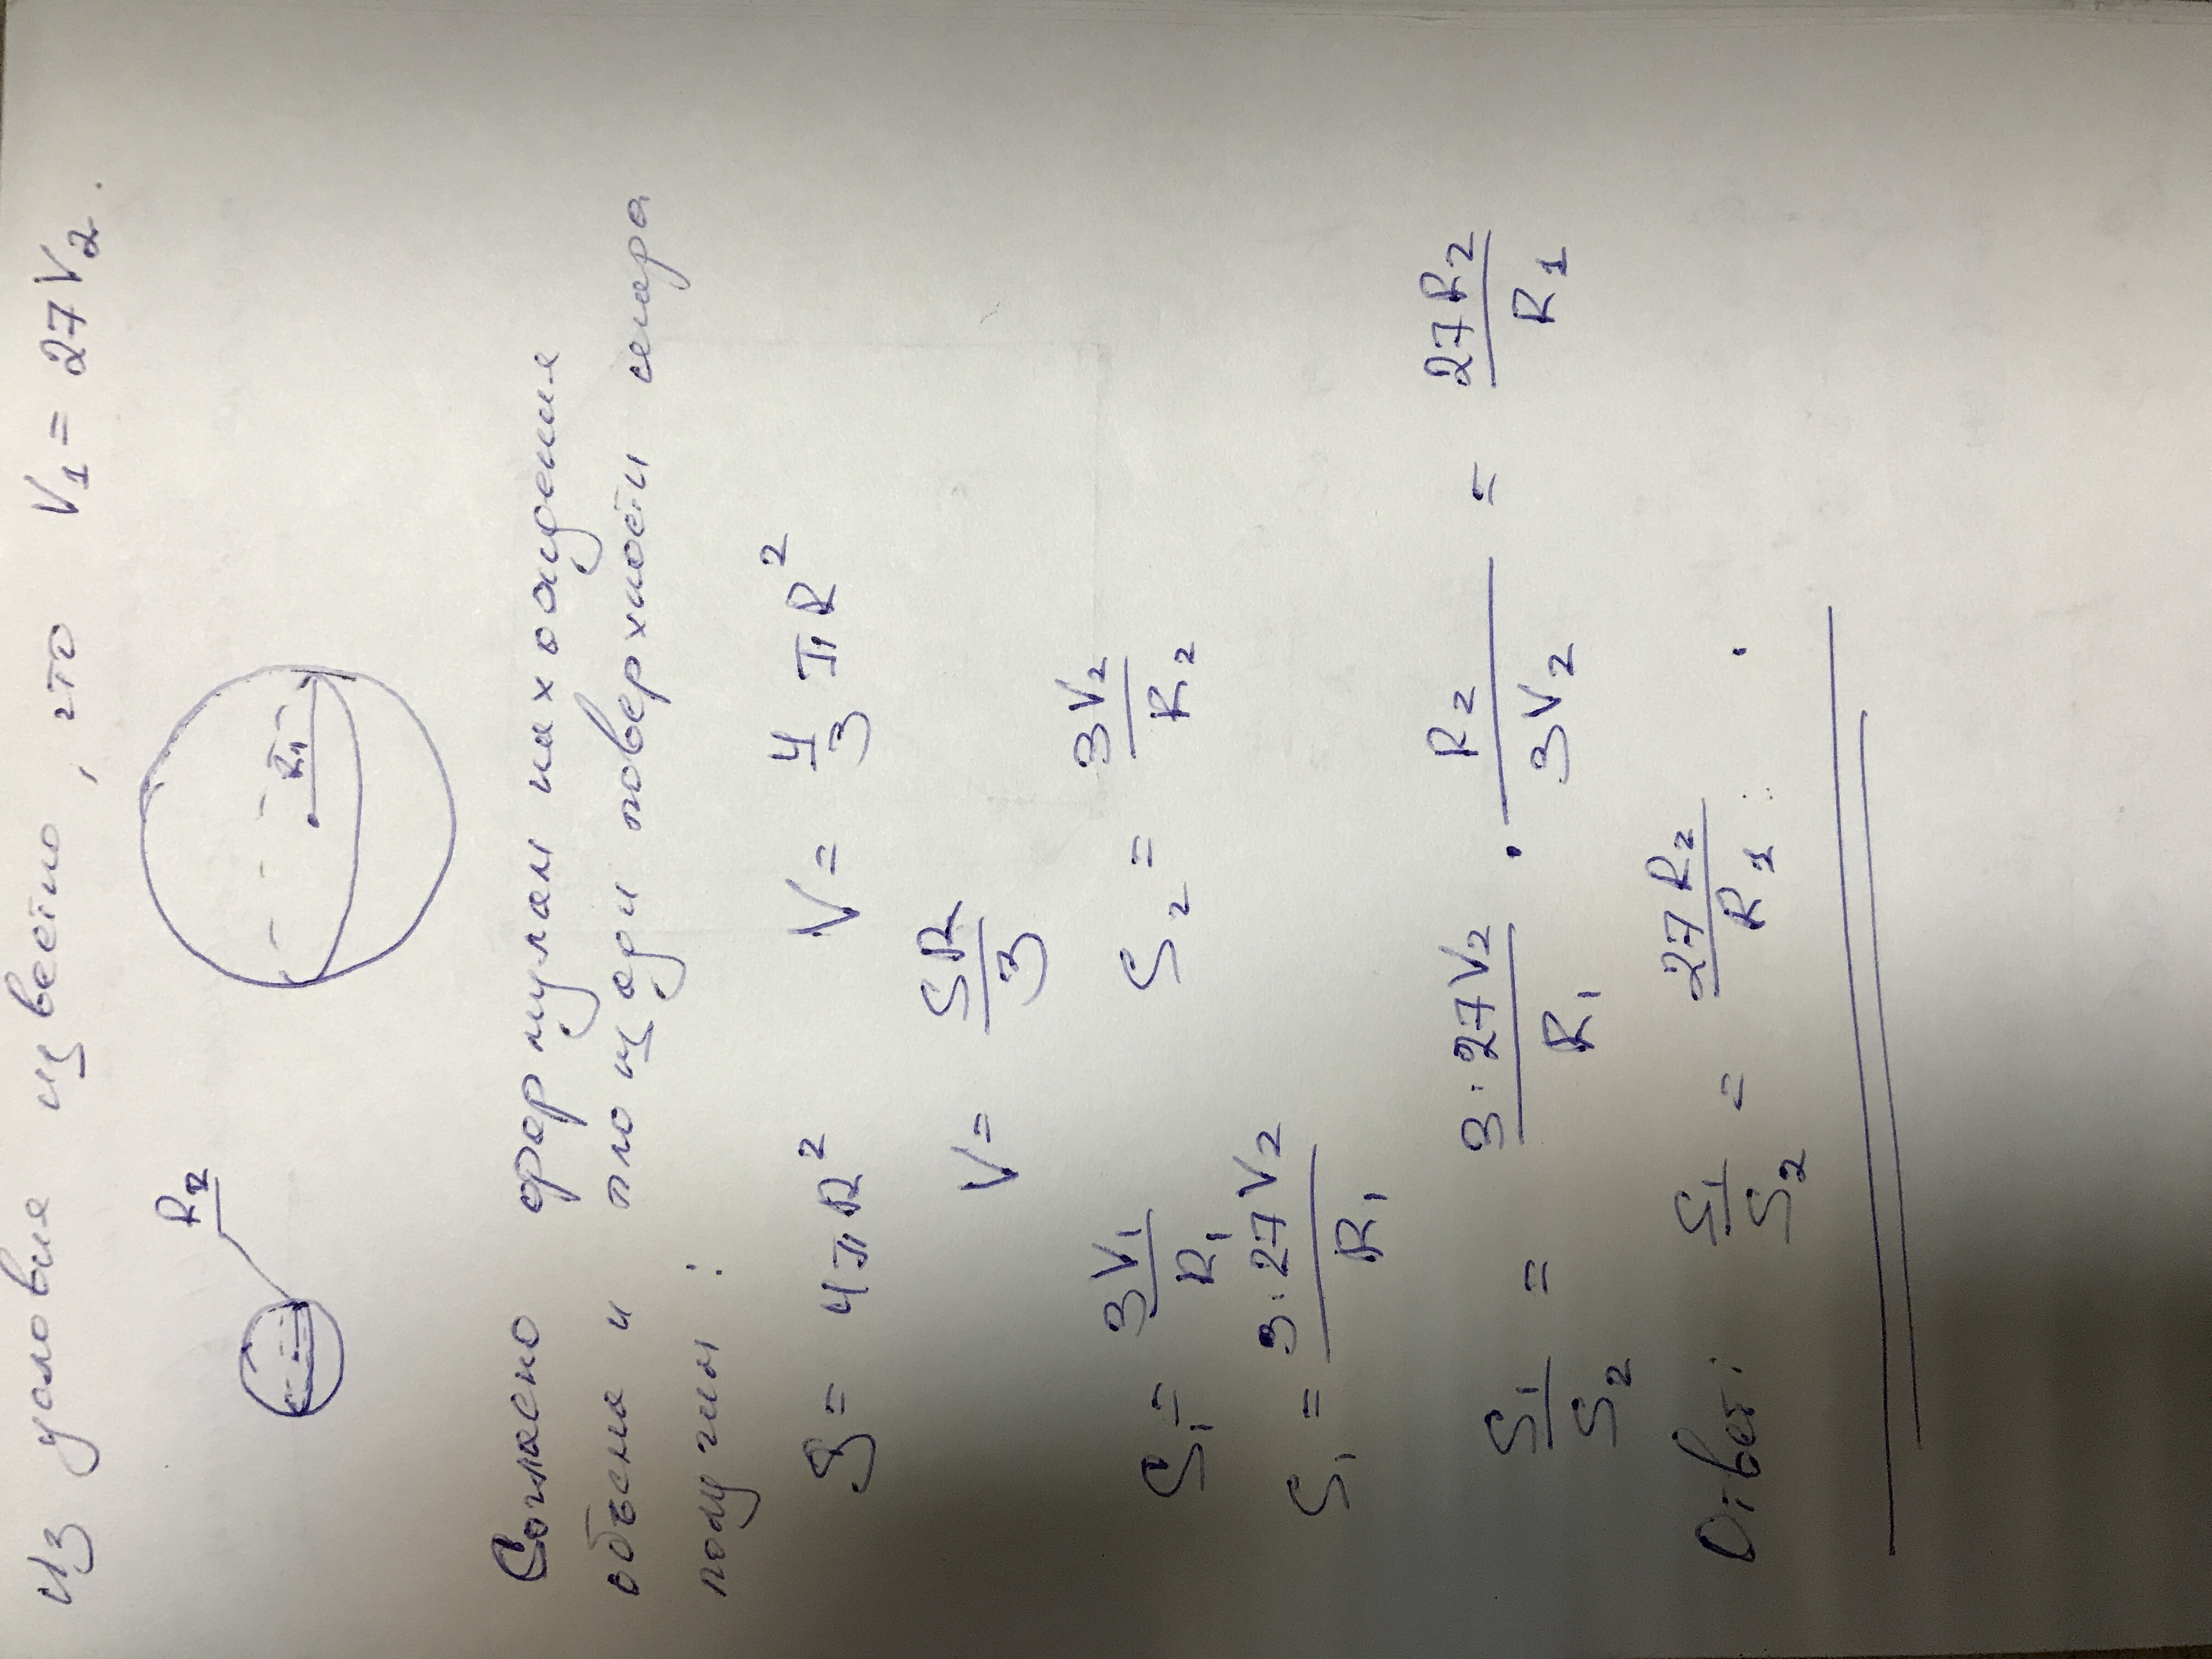 Из условие известно, что V₁ = 27V₂.
R₂
R₁
Согласно формулам нахождения
объема и площади поверхности шара
получим:
S = 4πR² V = 4/3 πR²
V = SR/3
S₁ = 3V₁/R₁ S₂ = 3V₂/R₂
S₁ = 3·27V₂/R₁
S₁/S₂ = 3·27V₂/R₁ · R₂/3V₂ = 27R₂/R₁
Ответ: S₁/S₂ = 27R₂/R₁.